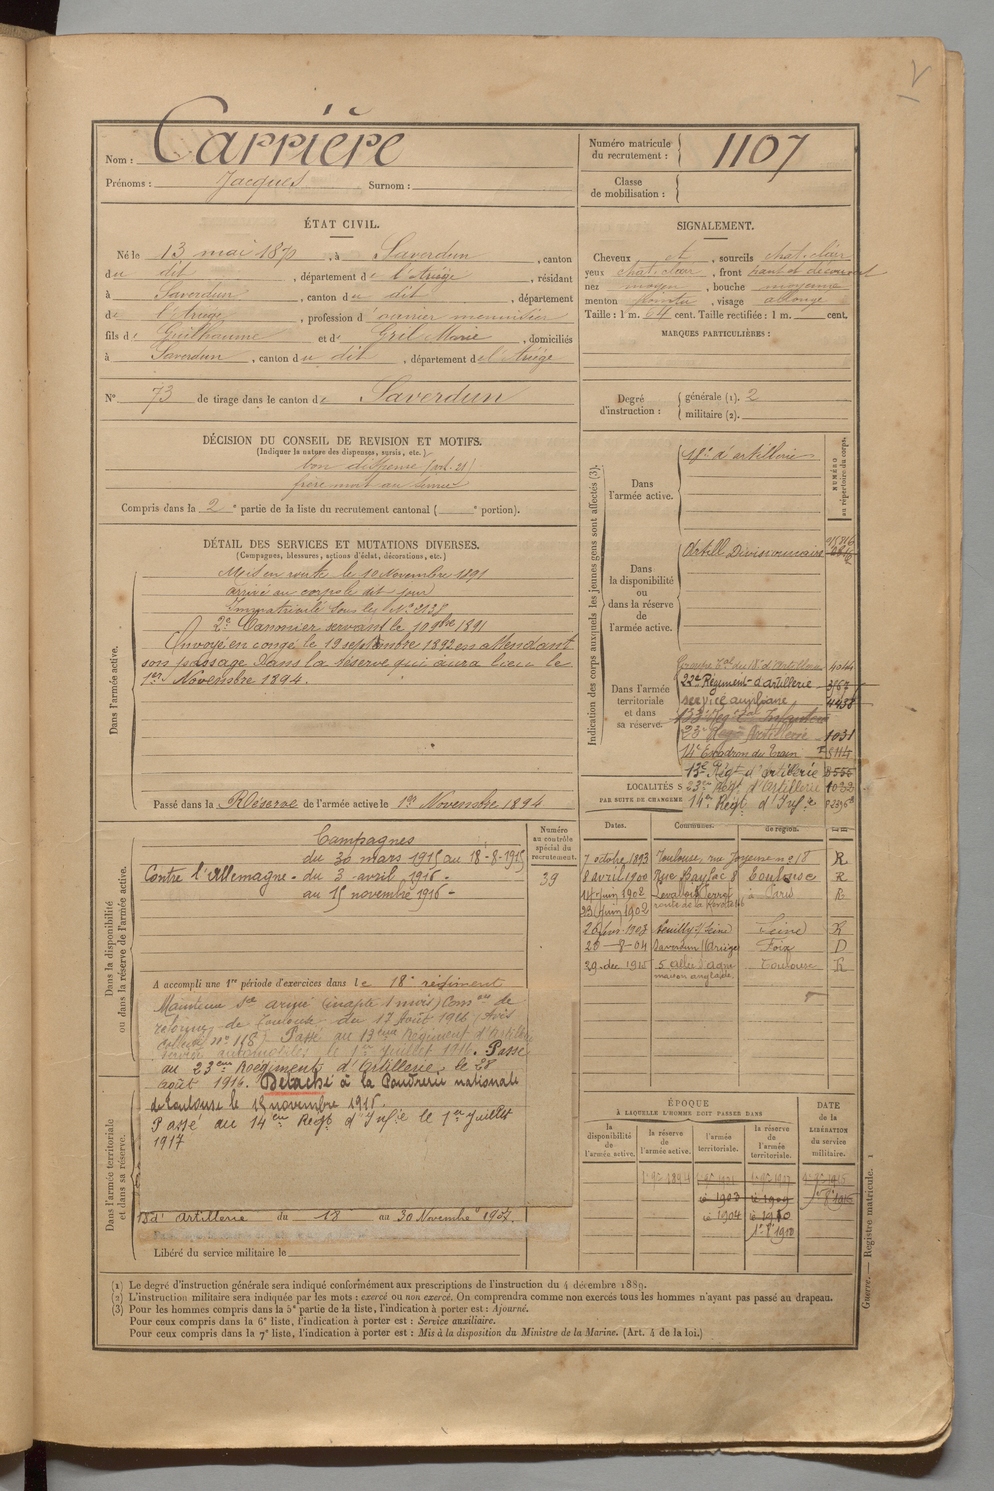 Carrière
Nom :
Prénoms : Jacques Surnom :
Numéro matricule
du recrutement : 1107
Classe
de mobilisation :
ÉTAT CIVIL.
Né le 13 mai 1870, à Saverdun, canton
du dit, département de l'Ariège, résidant
à Saverdun, canton du dit, département
de l'Ariège, profession d'ouvrier menuisier
fils de Guilhaume et de Gril Marie, domiciliés
à Saverdun, canton du dit, département de l'Ariège
N° 73 de tirage dans le canton de Saverdun
SIGNALEMENT.
Cheveux et, sourcils chat. clair
yeux chat. clair, front haut et découvert
nez moyen, bouche moyenne
menton pointu, visage allongé
Taille : 1 m. 64 cent. Taille rectifiée : 1 m. cent.
MARQUES PARTICULIÈRES :
Degré
d'instruction :
générale (1). 2
militaire (2).
DÉCISION DU CONSEIL DE REVISION ET MOTIFS.
(Indiquer la nature des dispenses, sursis, etc.)
bon dispensé (art. 21)
frère mort au service
Compris dans la 2e partie de la liste du recrutement cantonal ( e portion).
DÉTAIL DES SERVICES ET MUTATIONS DIVERSES.
(Campagnes, blessures, actions d'éclat, décorations, etc.)
Dans l'armée active.
Mis en route le 10 Novembre 1891
arrivé au corps le dit jour
Immatriculé sous le N° 3138
2e Canonier servant le 10 9bre 1891
Envoyé en congé le 19 septembre 1892 en attendant
son passage dans la réserve qui aura lieu le
1er Novembre 1894.
Passé dans la Réserve de l'armée active le 1er Novembre 1894
Indication des corps auxquels les jeunes gens sont affectés (3).
NUMÉRO
au répertoire du corps.
Dans
l'armée active.
18e d'artillerie
Dans
la disponibilité
ou
dans la réserve
de
l'armée active.
Artill Divisionnaire
Dans l'armée
territoriale
et dans
sa réserve.
Groupe Tal du 18e d'Artillerie 4044
22e Régiment d'artillerie 3167
service auxiliaire 4438
133e Reg Tal Infanterie
23e Reg Artillerie 1031
14e Escadron du Train
13e Régt d'artillerie
23e Regt d'Artillerie 1022
14e Regt d'Infie
LOCALITÉS S
PAR SUITE DE CHANGEME
Dates. Communes. de région.
7 octobre 1893 Toulouse, rue Joyeuse n° 18 R
8 avril 1900 Rue Bayssac 8 Toulouse R
14 juin 1902 Levallois Perret à Paris R
23 juin 1902 route de la Révolte
26 1903 Neuilly s/ Seine Seine R
20-8-04 Saverdun (Ariège) Foix D
29 dec 1915 5 allée Toulouse R
Dans la disponibilité
ou dans la réserve de l'armée active.
Numéro
au contrôle
spécial du
recrutement.
39
Campagnes
du 30 mars 1915 au 18-8-1915
Contre l'Allemagne - du 3 avril 1916 -
au 15 novembre 1916 -
A accompli une 1re période d'exercices dans le 18e régiment
Maintenu Sce armé (inapte 1 mois) Com on de
réforme de Toulouse du 17 août 1916 (Avis
n° 118) Passé au 13eme Régiment d'Artillerie
service automobiles le 1er Juillet 1916. Passé
au 23eme Régiment d'Artillerie le 28
août 1916. Détaché à la Poudrerie nationale
de Toulouse le 15 novembre 1916.
Passé au 14eme Régt d'Infie le 1er Juillet
1917
Dans l'armée territoriale
et dans sa réserve.
18e d'artillerie du 18 au 30 Novembre 1907.
Libéré du service militaire le
ÉPOQUE
À LAQUELLE L'HOMME DOIT PASSER DANS
la
disponibilité
de
l'armée active.
la réserve
de
l'armée active.
l'armée
territoriale.
la réserve
de
l'armée
territoriale.
DATE
de la
LIBÉRATION
du service
militaire.
1903
1904
1909
1910
(1) Le degré d'instruction générale sera indiqué conformément aux prescriptions de l'instruction du 4 décembre 1889.
(2) L'instruction militaire sera indiquée par les mots : exercé ou non exercé. On comprendra comme non exercés tous les hommes n'ayant pas passé au drapeau.
(3) Pour les hommes compris dans la 5e partie de la liste, l'indication à porter est : Ajourné.
Pour ceux compris dans la 6e liste, l'indication à porter est : Service auxiliaire.
Pour ceux compris dans la 7e liste, l'indication à porter est : Mis à la disposition du Ministre de la Marine. (Art. 4 de la loi.)
Guerre. — Registre matricule. 1